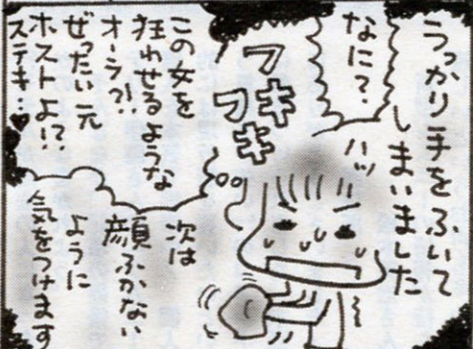 うっかり手をふいて
しまいました
ハッ
なに?
フキ
フキ
この女を
狂わせるような
オーラ?!
ぜったい元
ホストよ!?
ステキ…♥
次は
顔ふかない
ように
気をつけます